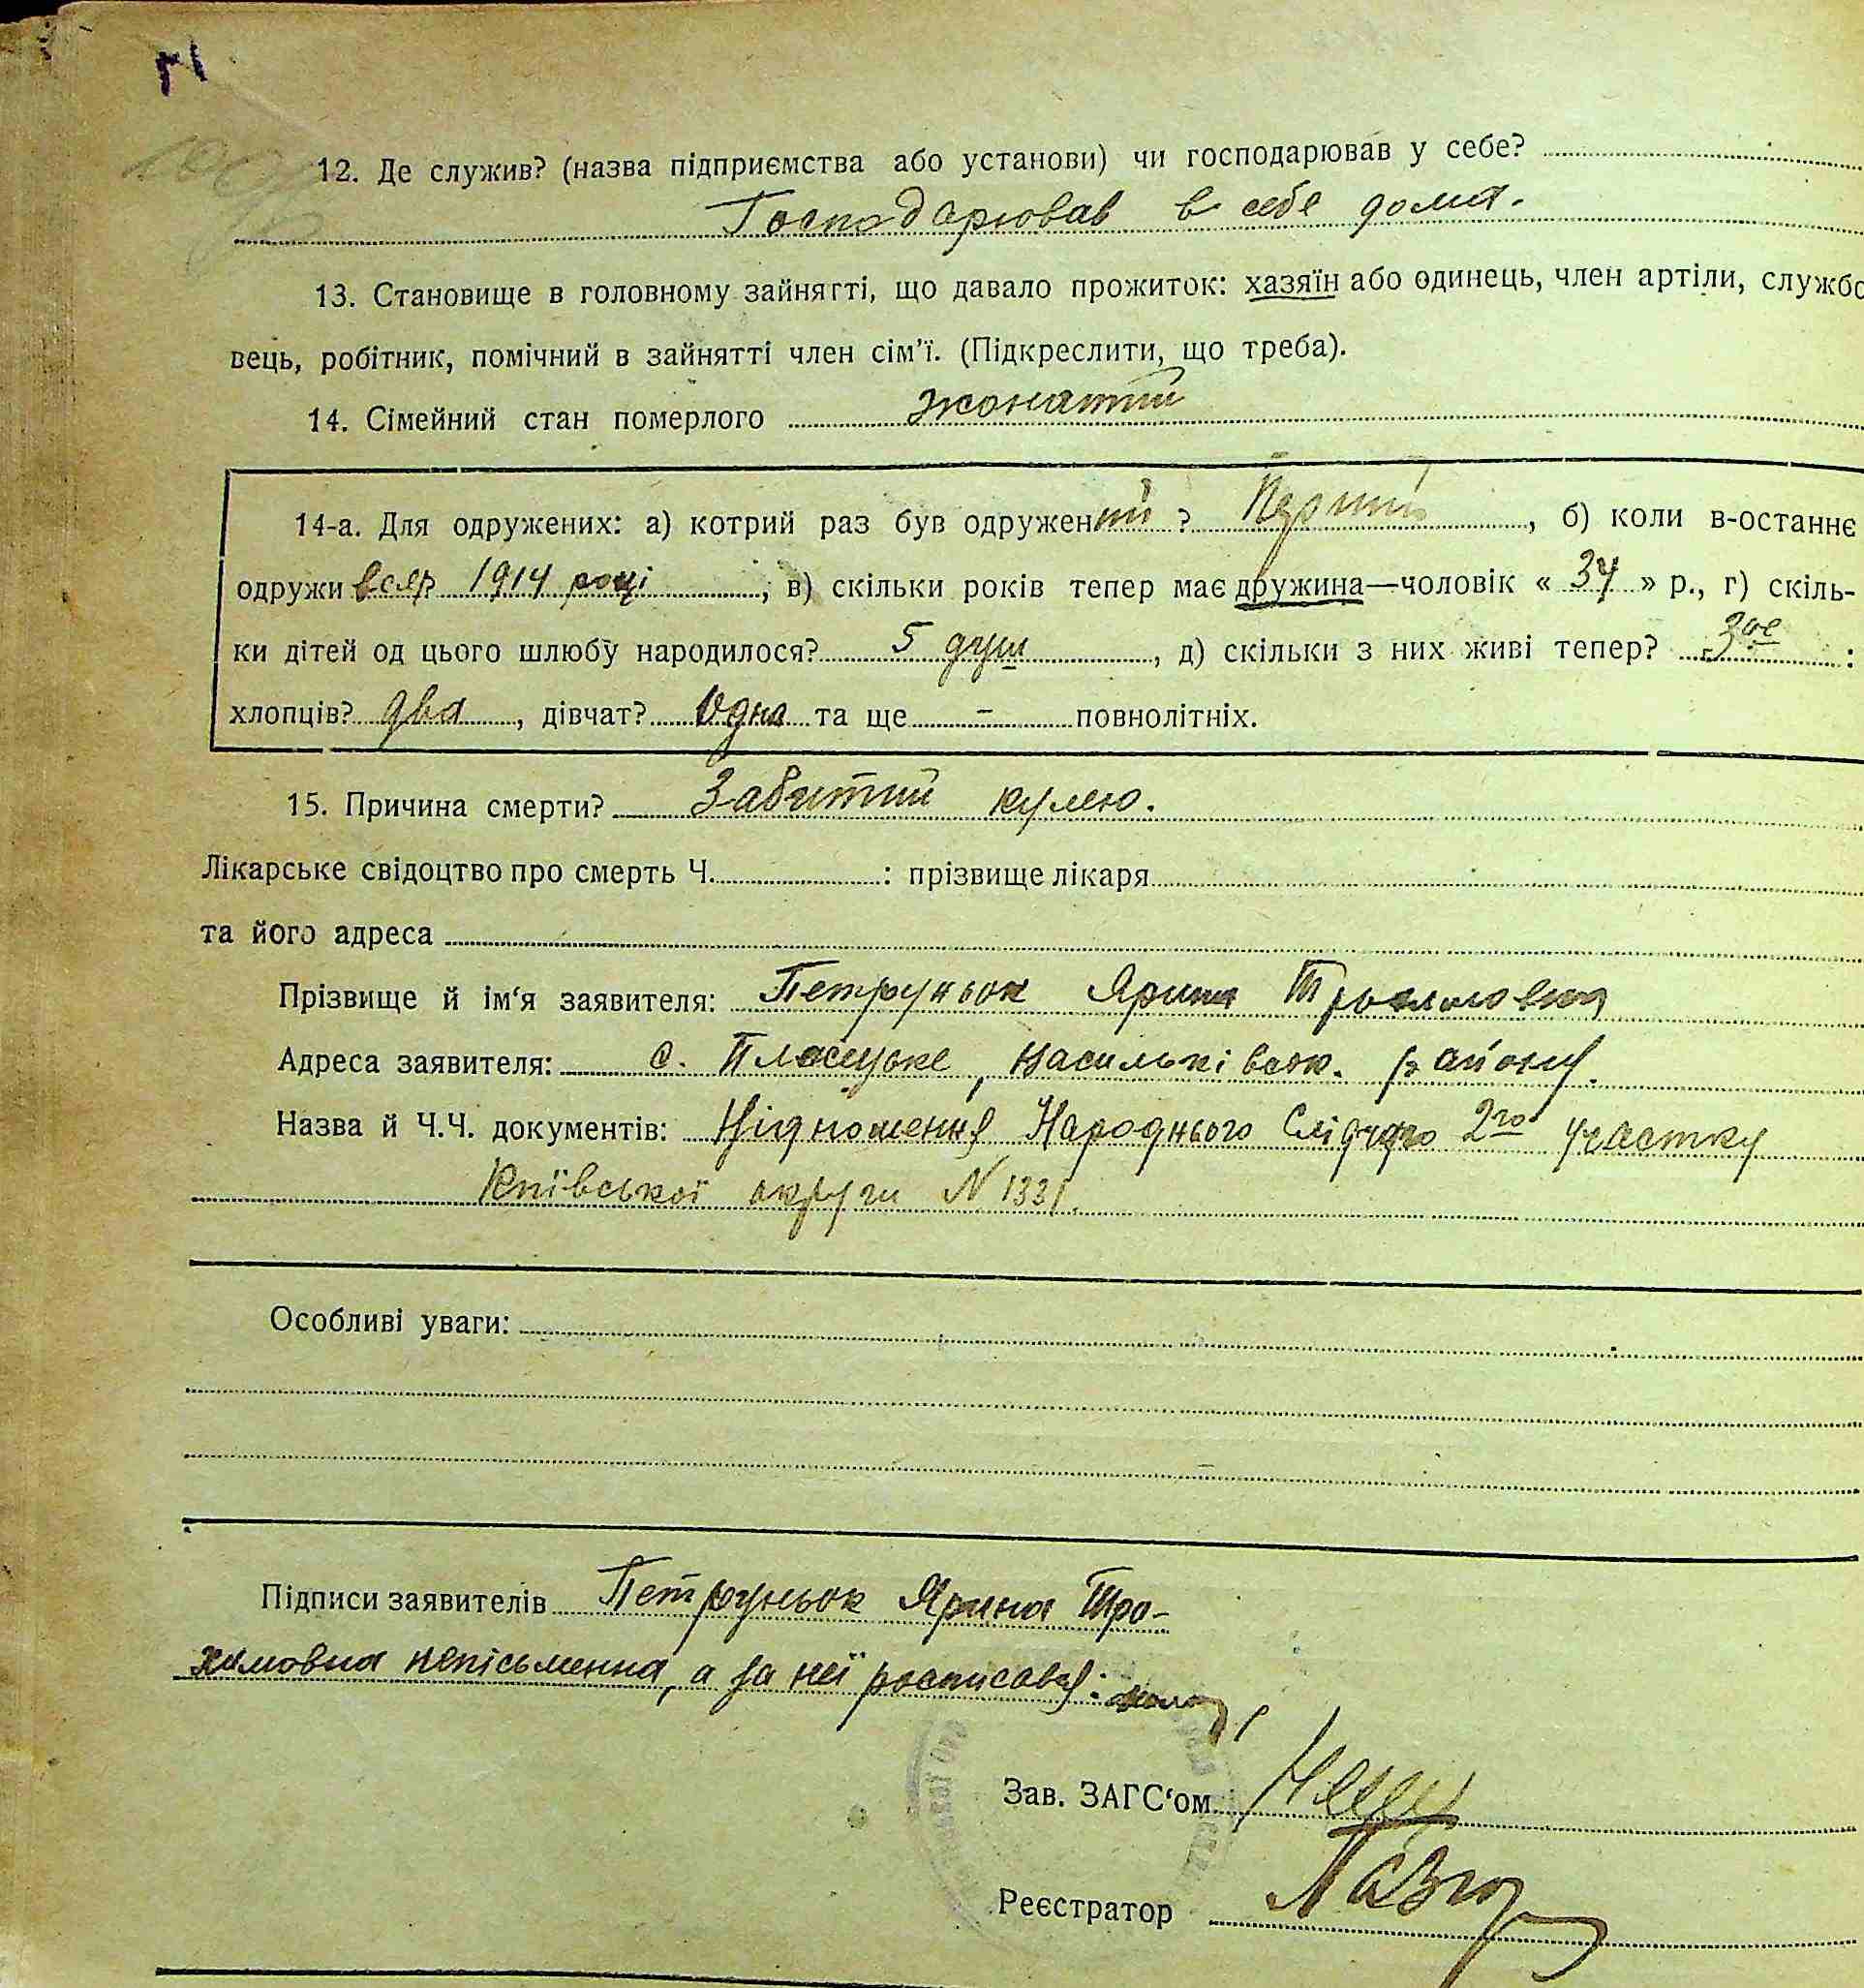 12. Де служив? (назва підприємства або установи) чи господарював у себе?
Господарював в себе дома.
13. Становище в головному зайнятті, що давало прожиток: хазяїн або одинець, член артіли, службо
вець, робітник, помічний в зайнятті член сім’ї. (Підкреслити, що треба).
14. Сімейний стан померлого жонатий
14-а. Для одружених: а) котрий раз був одружений? Перший, б) коли в-останнє
одружився 1914 році; в) скільки років тепер має дружина—чоловік « 34 » р., г) скіль-
ки дітей од цього шлюбу народилося? 5 душ, д) скільки з них живі тепер? 3ое :
хлопців? два, дівчат? Одна та ще - повнолітніх.
15. Причина смерти? Забитий кулею.
Лікарське свідоцтво про смерть Ч. : прізвище лікаря
та його адреса
Прізвище й ім‘я заявителя: Петруньок Ярина
Адреса заявителя: с. Плесецьке, Васильківськ. району.
Назва й Ч.Ч. документів: Відношення Народнього Слідчого 2го участку
Київської округи N 1331.
Особливі уваги:
Підписи заявителів Петруньок Ярина Тро-
химовна непісьменна, а за неї росписався:
Зав. ЗАГС‘ом
Реєстратор